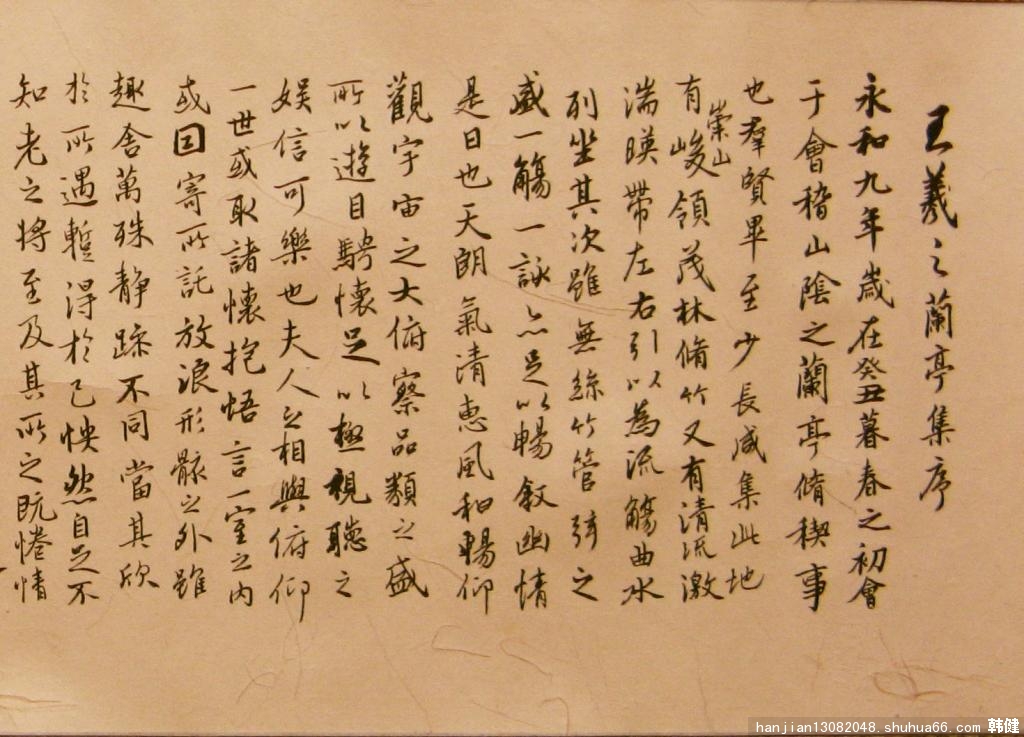 王羲之蘭亭集序
永和九年歲在癸丑暮春之初會
于會稽山陰之蘭亭脩稧事
也羣賢畢至少長咸集此地
有崇山峻領茂林脩竹又有清流激
湍暎帶左右引以為流觴曲水
列坐其次雖無絲竹管弦之
盛一觴一詠亦足以暢敘幽情
是日也天朗氣清惠風和暢仰
觀宇宙之大俯察品類之盛
所以遊目騁懷足以極視聽之
娛信可樂也夫人之相與俯仰
一世或取諸懷抱悟言一室之內
或因寄所託放浪形骸之外雖
趣舍萬殊静躁不同當其欣
於所遇暫得於己怏然自足不
知老之将至及其所之既惓情
hanjian13082048.shuhua66.com 韩健